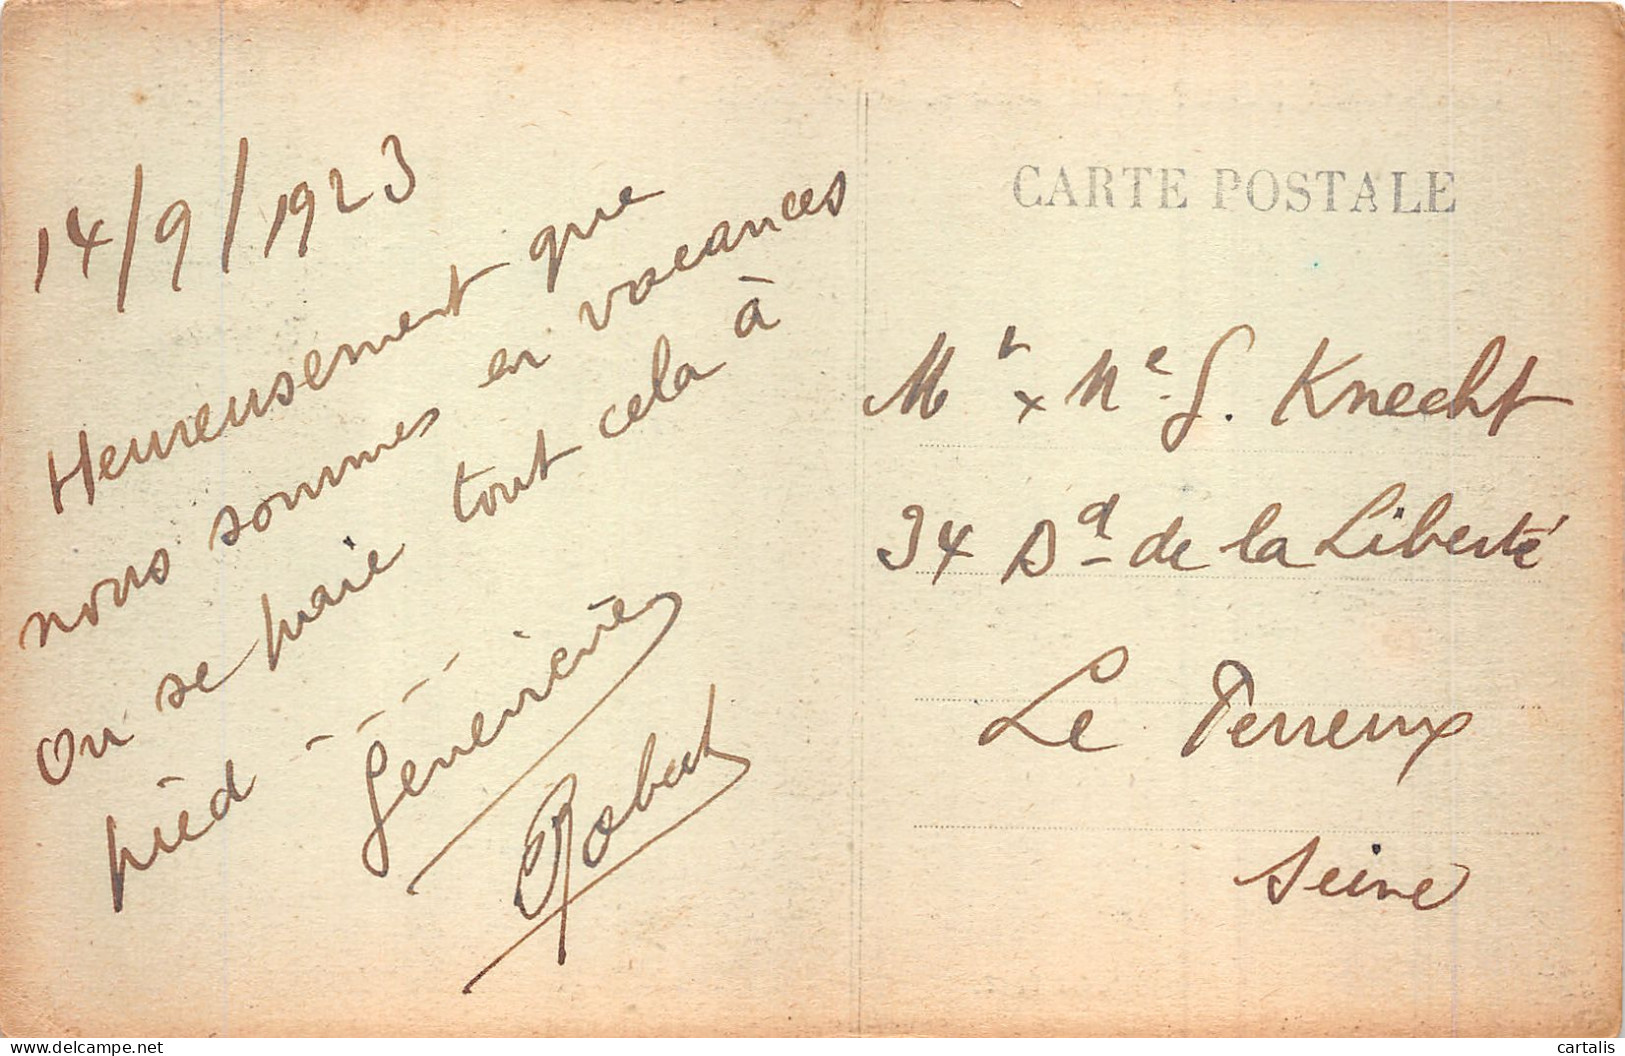 14/9/1923
Heureusement que
nous sommes en vacances
On se paie tout cela à
pied - - - -
Geneviève
Robert
CARTE POSTALE
Mr & Me G. Knecht
34 Bd de la Liberté
Le Perreux
Seine
www.delcampe.net
cartalis